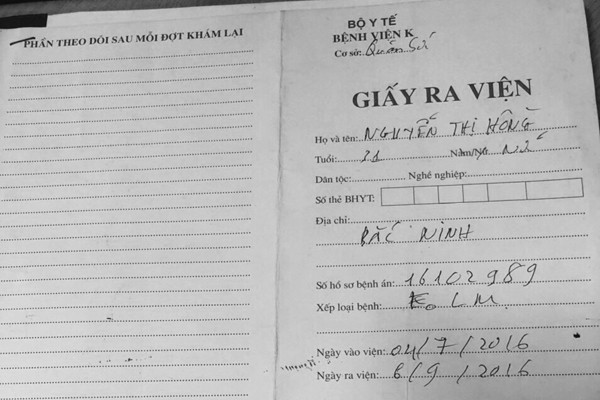 PHẦN THEO DÕI SAU MỖI ĐỢT KHÁM LẠI
BỘ Y TẾ
BỆNH VIỆN K
Cơ sở: Quán Sứ
GIẤY RA VIỆN
Họ và tên: NGUYỄN THỊ HỒNG
Tuổi: 21 Nam/Nữ Nữ
Dân tộc: Nghề nghiệp:
Số thẻ BHYT:
Địa chỉ:
BẮC NINH
Số hồ sơ bệnh án: 16102989
Xếp loại bệnh: K. LM
Ngày vào viện: 04/7/2016
Ngày ra viện: 6/9/2016